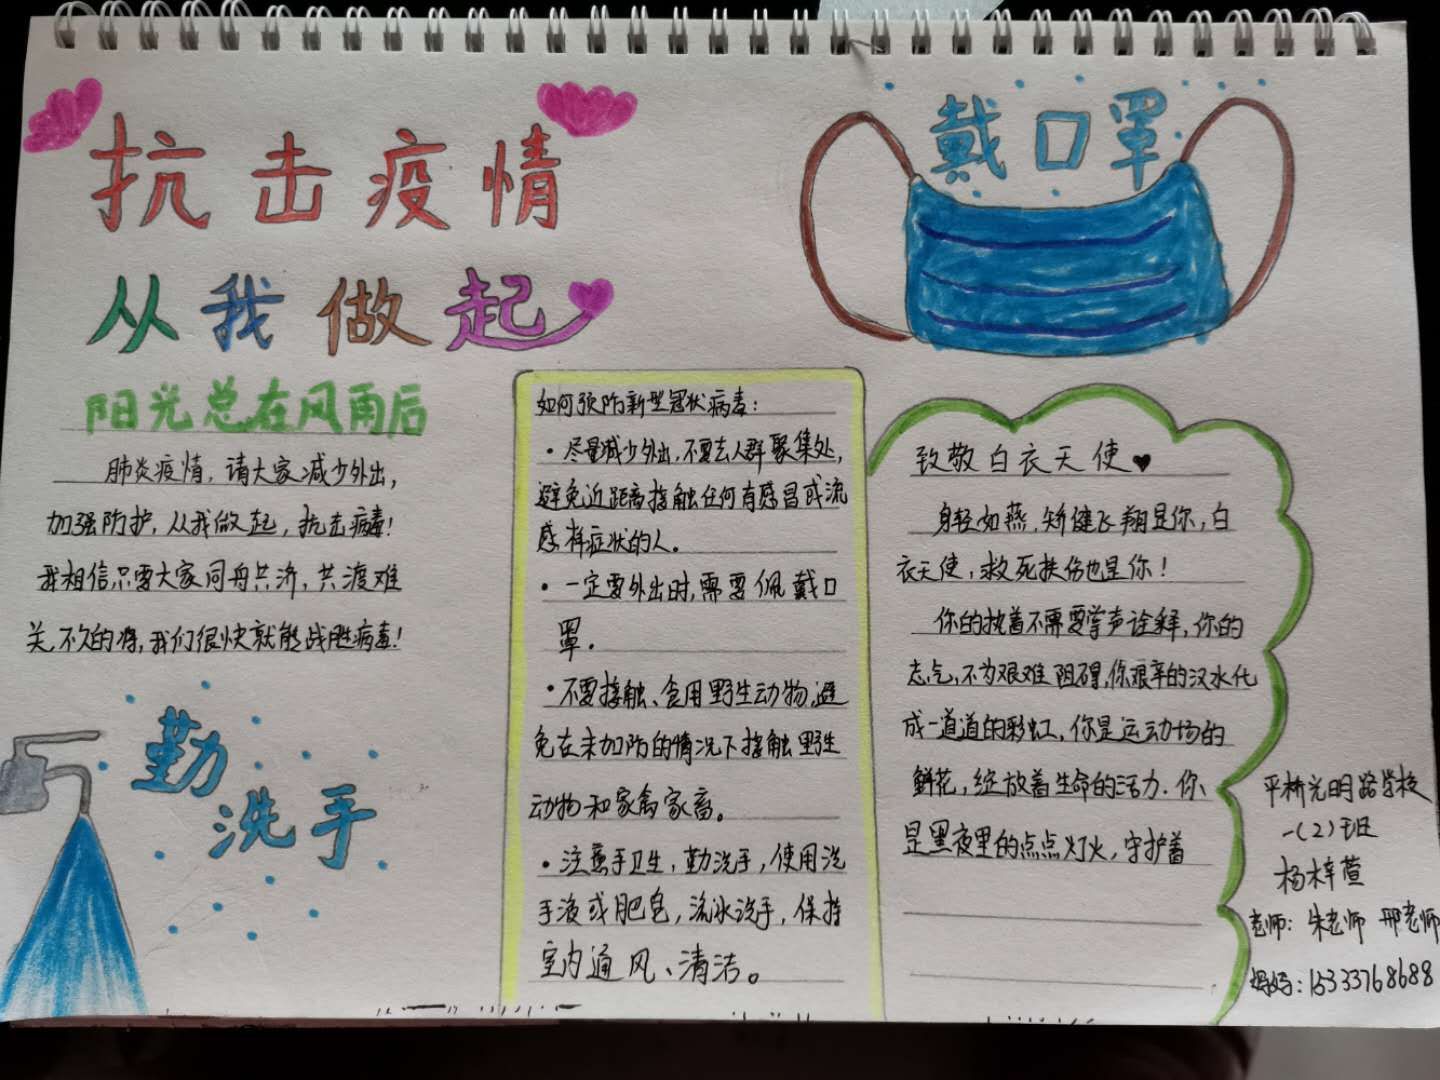 抗击疫情
从我做起
戴口罩
阳光总在风雨后
肺炎疫情，请大家减少外出，
加强防护，从我做起，抗击病毒！
我相信只要大家同舟共济，共渡难
关，不久的将，我们很快就能战胜病毒！
勤
洗手
如何预防新型冠状病毒：
·尽量减少外出，不要去人群聚集处，
避免近距离接触任何有感冒或流
感样症状的人。
·一定要外出时，需要佩戴口
罩。
·不要接触、食用野生动物，避
免在未加防的情况下接触野生
动物和家禽家畜。
·注意手卫生，勤洗手，使用洗
手液或肥皂，流水洗手，保持
室内通风、清洁。
致敬白衣天使♥
身轻如燕，矫健飞翔是你，白
衣天使，救死扶伤也是你！
你的执着不需要掌声诠释，你的
志气，不为艰难阻碍，你艰辛的汉水化
成一道道的彩虹，你是运动场的
鲜花，绽放着生命的活力．你
是黑夜里的点点灯火，守护着
平桥光明路学校
一(2)班
杨梓萱
老师：朱老师 邢老师
妈妈：15333768688